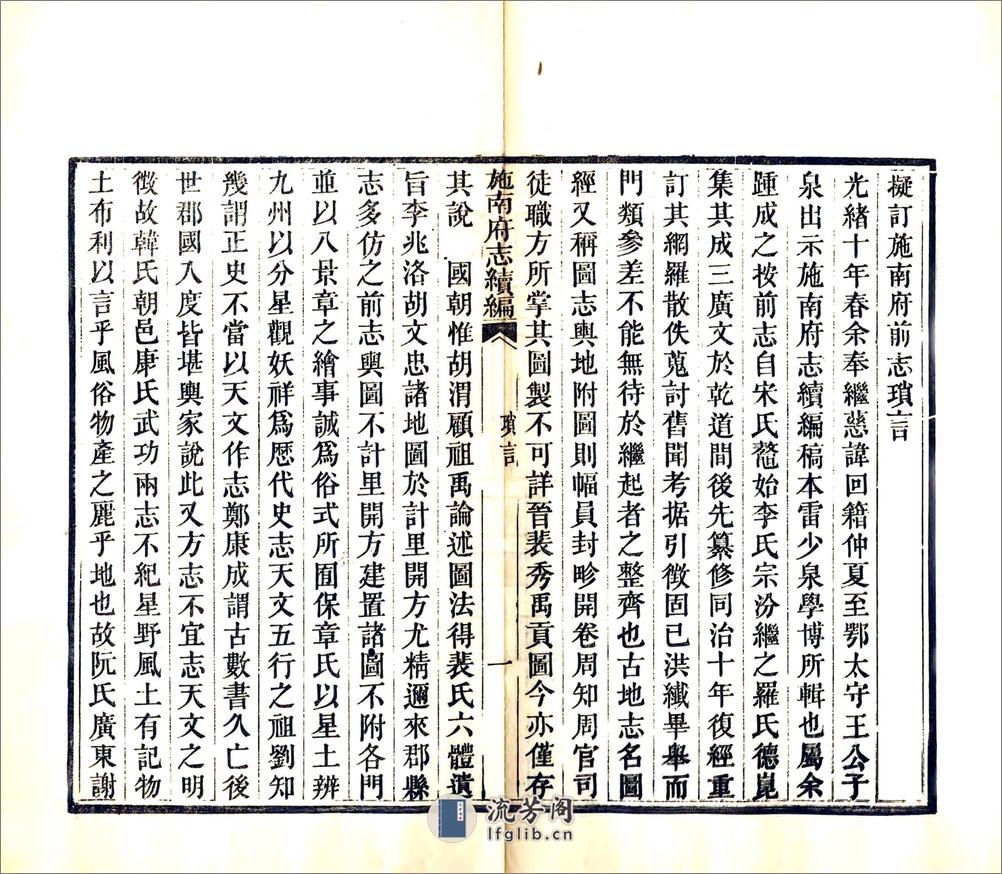 擬訂施南府前志瑣言
光緒十年春余奉繼慈諱回籍仲夏至鄂太守王公子
泉出示施南府志續編稿本雷少泉學博所輯也屬余
踵成之按前志自宋氏鼇始李氏宗汾繼之羅氏德崑
集其成三廣文於乾道間後先纂修同治十年復經重
訂其網羅散佚蒐討舊聞考据引徵固已洪纖畢舉而
門類參差不能無待於繼起者之整齊也古地志名圖
經又稱圖志輿地附圖則幅員封畛開卷周知周官司
徒職方所掌其圖製不可詳晉裴秀禹貢圖今亦僅存
施南府志續編 瑣言 一
其說 國朝惟胡渭顧祖禹論述圖法得裴氏六體遺
旨李兆洛胡文忠諸地圖於計里開方尤精邇來郡縣
志多仿之前志輿圖不計里開方建置諸圖不附各門
並以八景章之繪事誠為俗式所囿保章氏以星土辨
九州以分星觀妖祥為歷代史志天文五行之祖劉知
幾謂正史不當以天文作志鄭康成謂古數書久亡後
世郡國入度皆堪輿家說此又方志不宜志天文之明
徵故韓氏朝邑康氏武功兩志不紀星野風土有記物
土布利以言乎風俗物產之麗乎地也故阮氏廣東謝
流芳阁
lfglib.cn